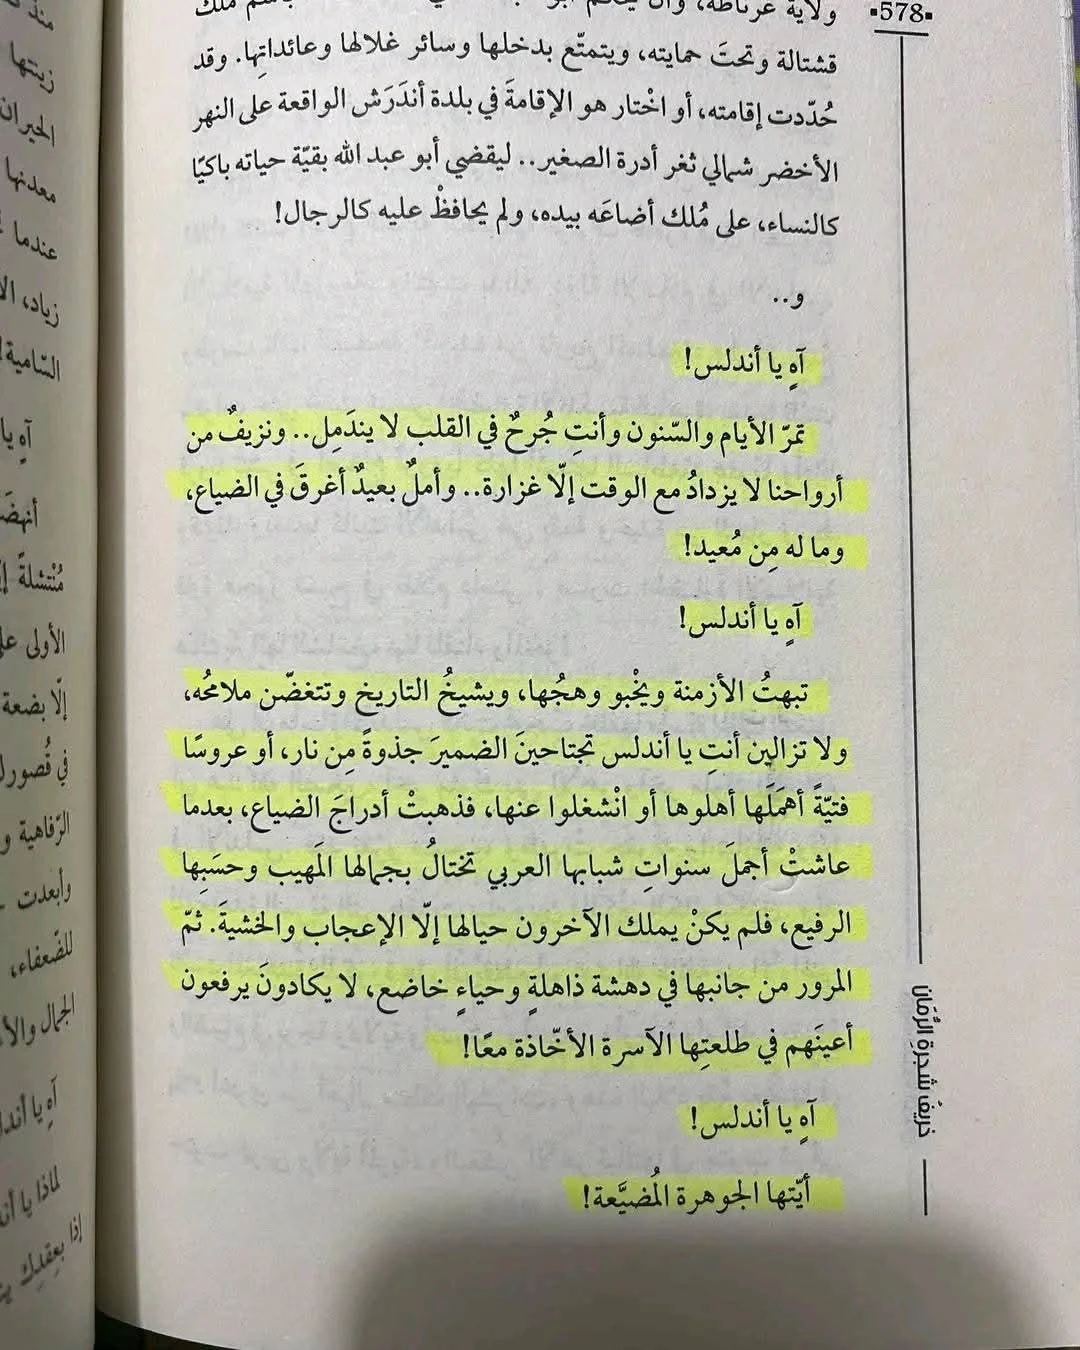 •578•
ولاية غرناطة، وأن
قشتالة وتحتَ حمايته، ويتمتّع بدخلها وسائر غلالها وعائداتِها. وقد
حُدّدت إقامته، أو اخْتار هو الإقامةَ في بلدة أندَرَش الواقعة على النهر
الأخضر شمالي ثغر أدرة الصغير.. ليقضي أبو عبد الله بقيّة حياته باكيًا
كالنساء، على مُلك أضاعَه بيده، ولم يحافظْ عليه كالرجال!
و..
آهٍ يا أندلس!
تمرّ الأيام والسّنون وأنتِ جُرحٌ في القلب لا يندَمِل.. ونزيفٌ من
أرواحنا لا يزدادُ مع الوقت إلّا غزارة.. وأملٌ بعيدٌ أغرقَ في الضياع،
وما له مِن مُعيد!
آهٍ يا أندلس!
تبهتُ الأزمنة ويخْبو وهجُها، ويشيخُ التاريخ وتتغضّن ملامحُه،
ولا تزالين أنتِ يا أندلس تجتاحينَ الضميرَ جذوةً مِن نار، أو عروسًا
فتيّةً أهمَلَها أهلوها أو انْشغلوا عنها، فذهبتْ أدراجَ الضياع، بعدما
عاشتْ أجملَ سنواتِ شبابها العربي تختالُ بجمالها المَهيب وحسَبِها
الرفيع، فلم يكنْ يملك الآخرون حيالها إلّا الإعجاب والخشيةَ. ثمّ
المرور من جانبها في دهشة ذاهلةٍ وحياءٍ خاضع، لا يكادونَ يرفعون
أعينَهم في طلعتِها الآسرة الأخّاذة معًا!
آهٍ يا أندلس!
أيّتها الجوهرة المُضيَّعة!
خريفُ شجرةِ الرُّمّان
زينتها
الجيران
معدنها
عندما
زياد، الأ
السّامية!
آهٍ يا
أنهضَ
مُنْتشلةً
الأولى
إلّا بضعة
في قُصور
الرّفاهية و
وأبعدت
للضّعفاء،
الجمال والأ
آهٍ يا أند
لماذا يا أند
إذا بعِقدِك